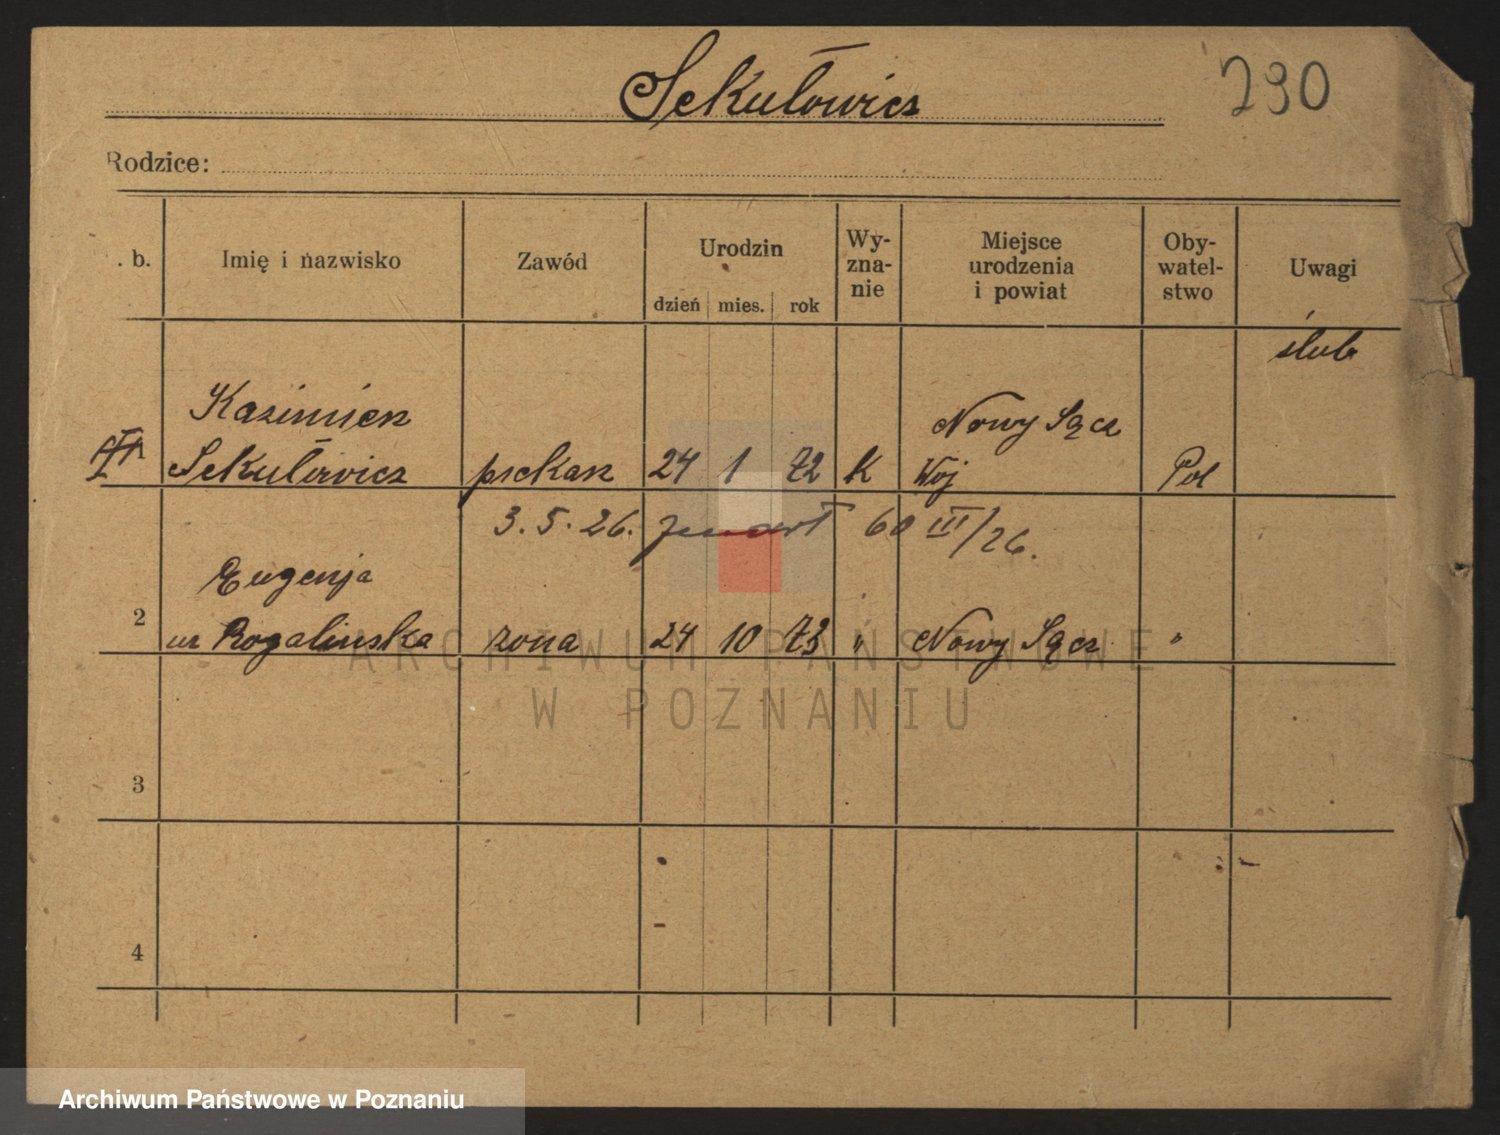 Sekułowicz
290
Rodzice:
. b.
Imię i nazwisko
Zawód
Urodzin
dzień mies. rok
Wy-
zna-
nie
Miejsce
urodzenia
i powiat
Oby-
watel-
stwo
Uwagi
ślub
1
Kazimierz
Sekułowicz
piekarz
24 1 72
K
Nowy Sącz
Woj
Pol
3. 5. 26. zmarł 60 III/26.
2
Eugenja
ur Rogalinska
żona
24 10 73
"
Nowy Sącz
"
3
4
ARCHIWUM PAŃSTWOWE
W POZNANIU
Archiwum Państwowe w Poznaniu